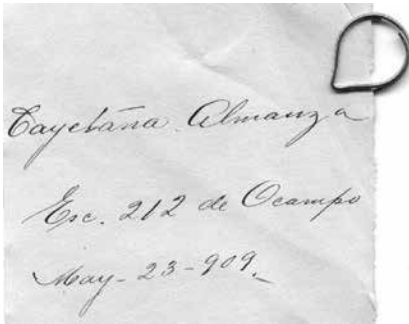 Cayetana Almanza
Esc. 212 de Ocampo
May-23-909._